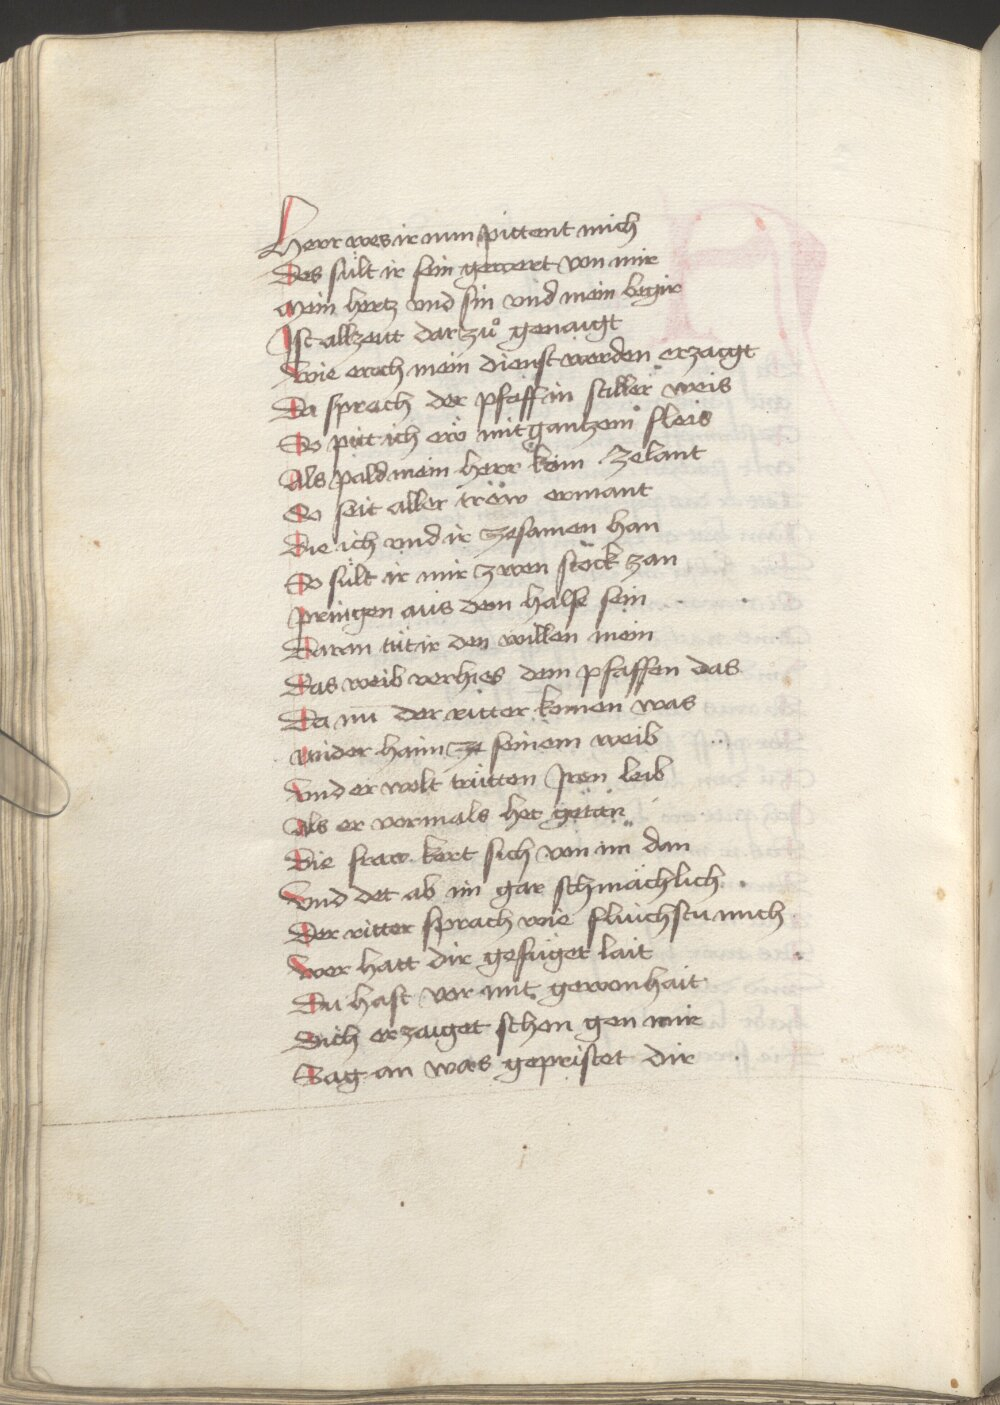 Herr wes ir nun pittent mich
Des sült ir sein gewert von mir
Mein hertz vnd sin vnd mein begir
Ist allzeitt dar zů genaigt
Wie ewch mein dienst werden erzaigt
Da sprach der pfaff in stiller weis
So pitt ich ew mit gantzem fleis
Als pald mein herr köm ze lant
So seit aller tröw ermant
Die ich vnd ir zesamen han
So sült ir mir zwen stöck zan
Pringen aus dem halse sein
Daran tüt ir den willen mein
Das weib verhies dem pfaffen das
Da nū der ritter komen was
Wider haim ze seinem weib
Vnd er wolt trütten jren leib
Als er vormals het getän
Die fraw kert sich von im dan
Vnd det ab im gar schmächlich
Der ritter sprach wie fluichstu mich
Wer hatt dir gefüget lait
Du hast vor mit gewonhait
Dich erzaiget schon gen mir
Sag an was gepristet dir